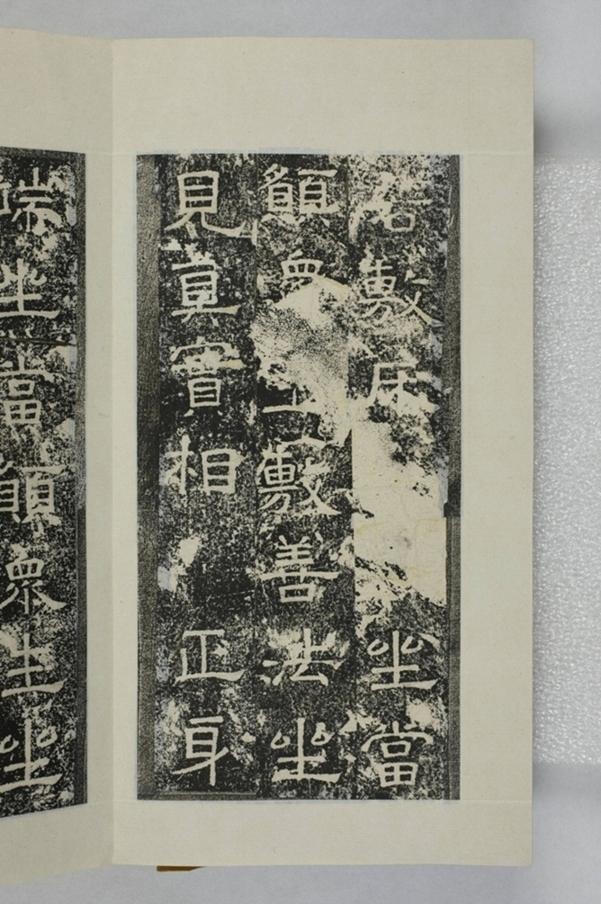 若敷床坐當
願眾生敷善法坐
見真實相 正身
端坐當願眾生坐